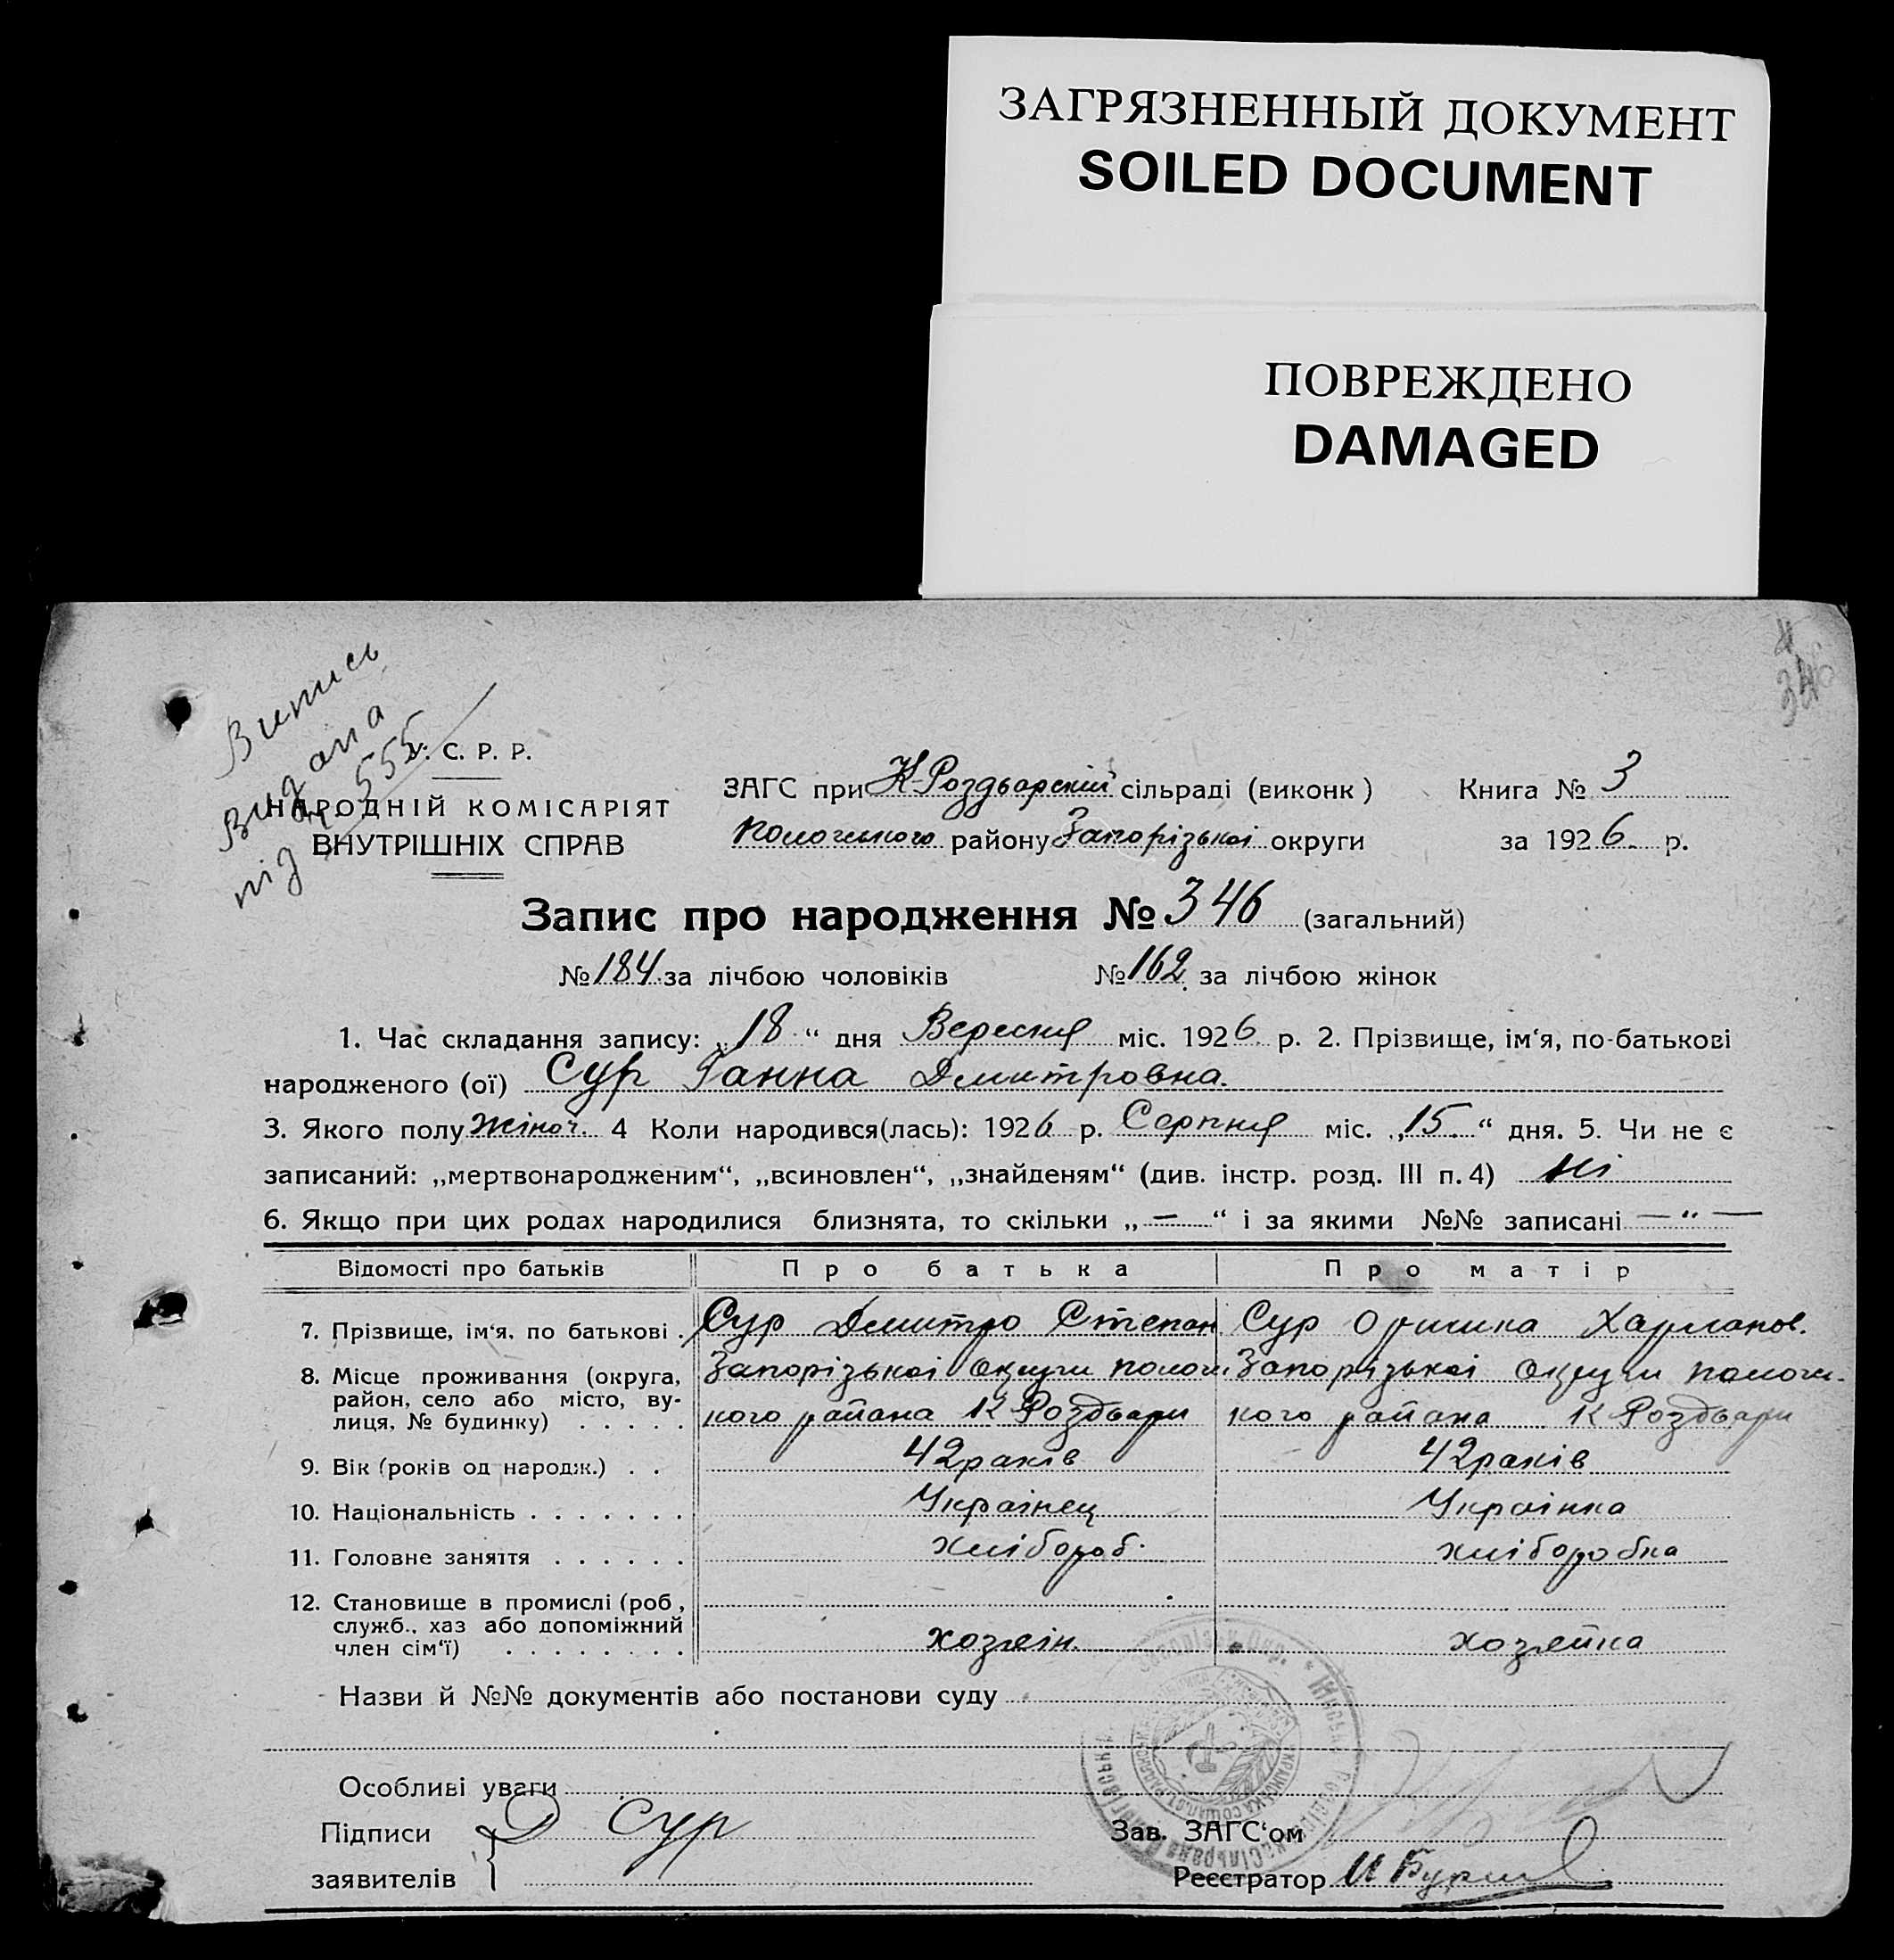 ЗАГРЯЗНЕННЫЙ ДОКУМЕНТ
SOILED DOCUMENT
ПОВРЕЖДЕНО
DAMAGED
346
Випись
видана
під № 555
У. С. Р. Р.
НАРОДНІЙ КОМІСАРІЯТ
ВНУТРІШНІХ СПРАВ
ЗАГС при К-Роздьорскій сільраді (виконк) Книга № 3
Пологського району Запорізької округи за 1926 р.
Запис про народження № 346 (загальний)
№ 184 за лічбою чоловіків № 162 за лічбою жінок
1. Час складання запису: „18“ дня Вересня міс. 1926 р. 2. Прізвище, ім'я, по-батькові
народженого (ої) Сур Ганна Дмитровна.
3. Якого полу жіноч. 4 Коли народився(лась): 1926 р. Серпня міс. „15.“ дня. 5. Чи не є
записаний: „мертвонародженим“, „всиновлен“, „знайденям“ (див. інстр. розд. III п. 4) ні
6. Якщо при цих родах народилися близнята, то скільки „—“ і за якими №№ записані — “ —
Відомості про батьків Про батька Про матір
7. Прізвище, ім'я, по батькові . Сур Дмитро Степан. Сур Орина Харланов.
8. Місце проживання (округа, Запорізькоі округи пологи. Запорізькоі округи пологи-
район, село або місто, ву-
лиця, № будинку) . . . . . кого района К Роздьори кого района К Роздьори
9. Вік (років од народж.) . . 42 раків 42 раків
10. Національність . . . . . . . Украінец Украінка
11. Головне заняття . . . . . . хлібороб. хліборобка
12. Становище в промислі (роб.,
служб., хаз або допоміжний
член сім'ї) . . . . . . . . хозяін хозяйка
Назви й №№ документів або постанови суду
Особливі уваги
Підписи Д Сур Зав. ЗАГС'ом
заявителів Реєстратор И